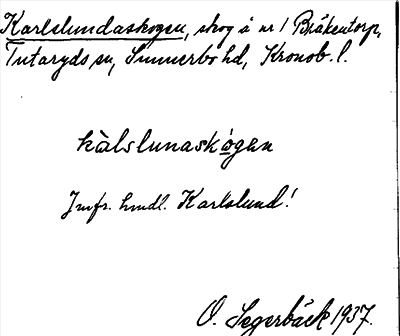 Karlslundaskogen, skog å nr 1 Bråkentorp,
Tutaryds sn, Sunnerbo hd, Kronob. l.
kàlslunaskógen
Jmfr. hmdl. Karlslund!
O. Segerbäck 1937.